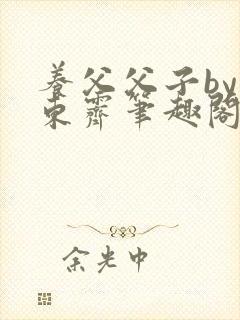 养父父子by
东霽笔趣阁
余光中